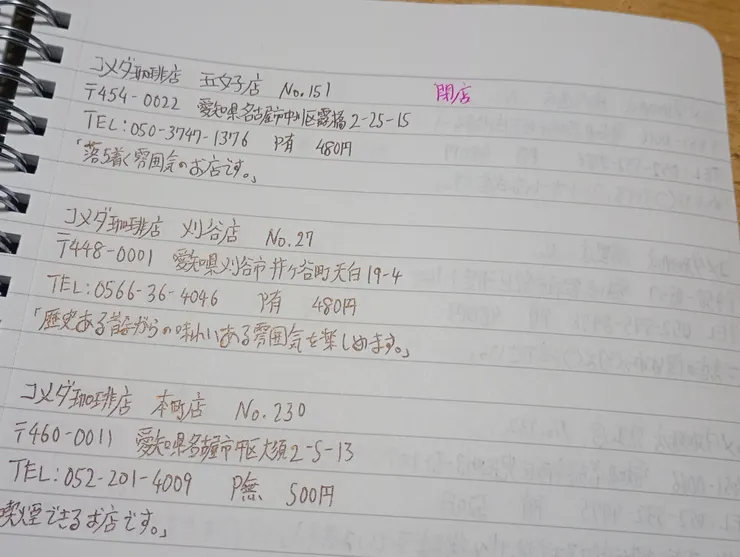 コメダ珈琲店 五女子店 No.151 閉店
〒454-0022 愛知県名古屋市中川区露橋2-25-15
TEL:050-3747-1376 P有 480円
「落ち着く雰囲気のお店です。」
コメダ珈琲店 刈谷店 No.27
〒448-0001 愛知県刈谷市井ケ谷町天白19-4
TEL:0566-36-4046 P有 480円
「歴史ある昔ながらの味わいある雰囲気を楽しめます。」
コメダ珈琲店 本町店 No.230
〒460-0011 愛知県名古屋市中区大須2-5-13
TEL:052-201-4009 P無 500円
喫煙できるお店です。」